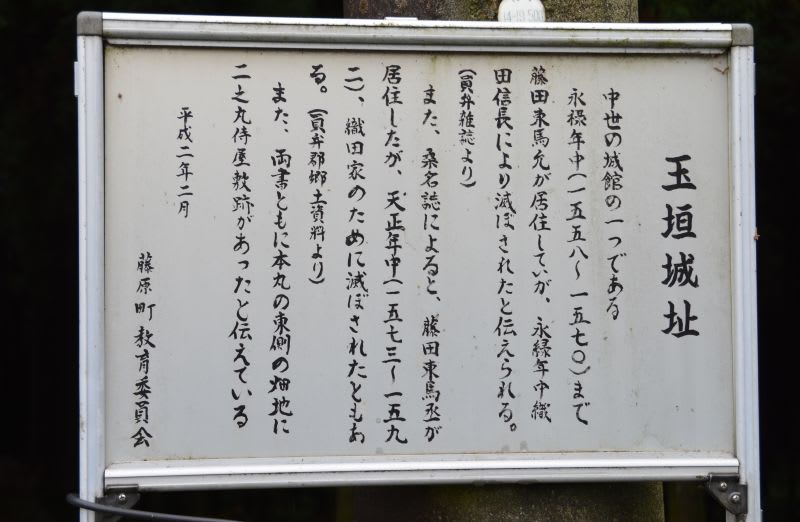 14-19 50
玉垣城址
中世の城館の一つである
永禄年中(一五五八〜一五七〇)まで
藤田東馬允が居住していが、永禄年中織
田信長により滅ぼされたと伝えられる。
(員弁雑誌より)
また、桑名誌によると、藤田東馬丞が
居住したが、天正年中(一五七三〜一五九
二)、織田家のために滅ぼされたともあ
る。(員弁郡郷土資料より)
また、両書ともに本丸の東側の畑地に
二之丸侍屋敷跡があったと伝えている
平成二年二月
藤原町教育委員会